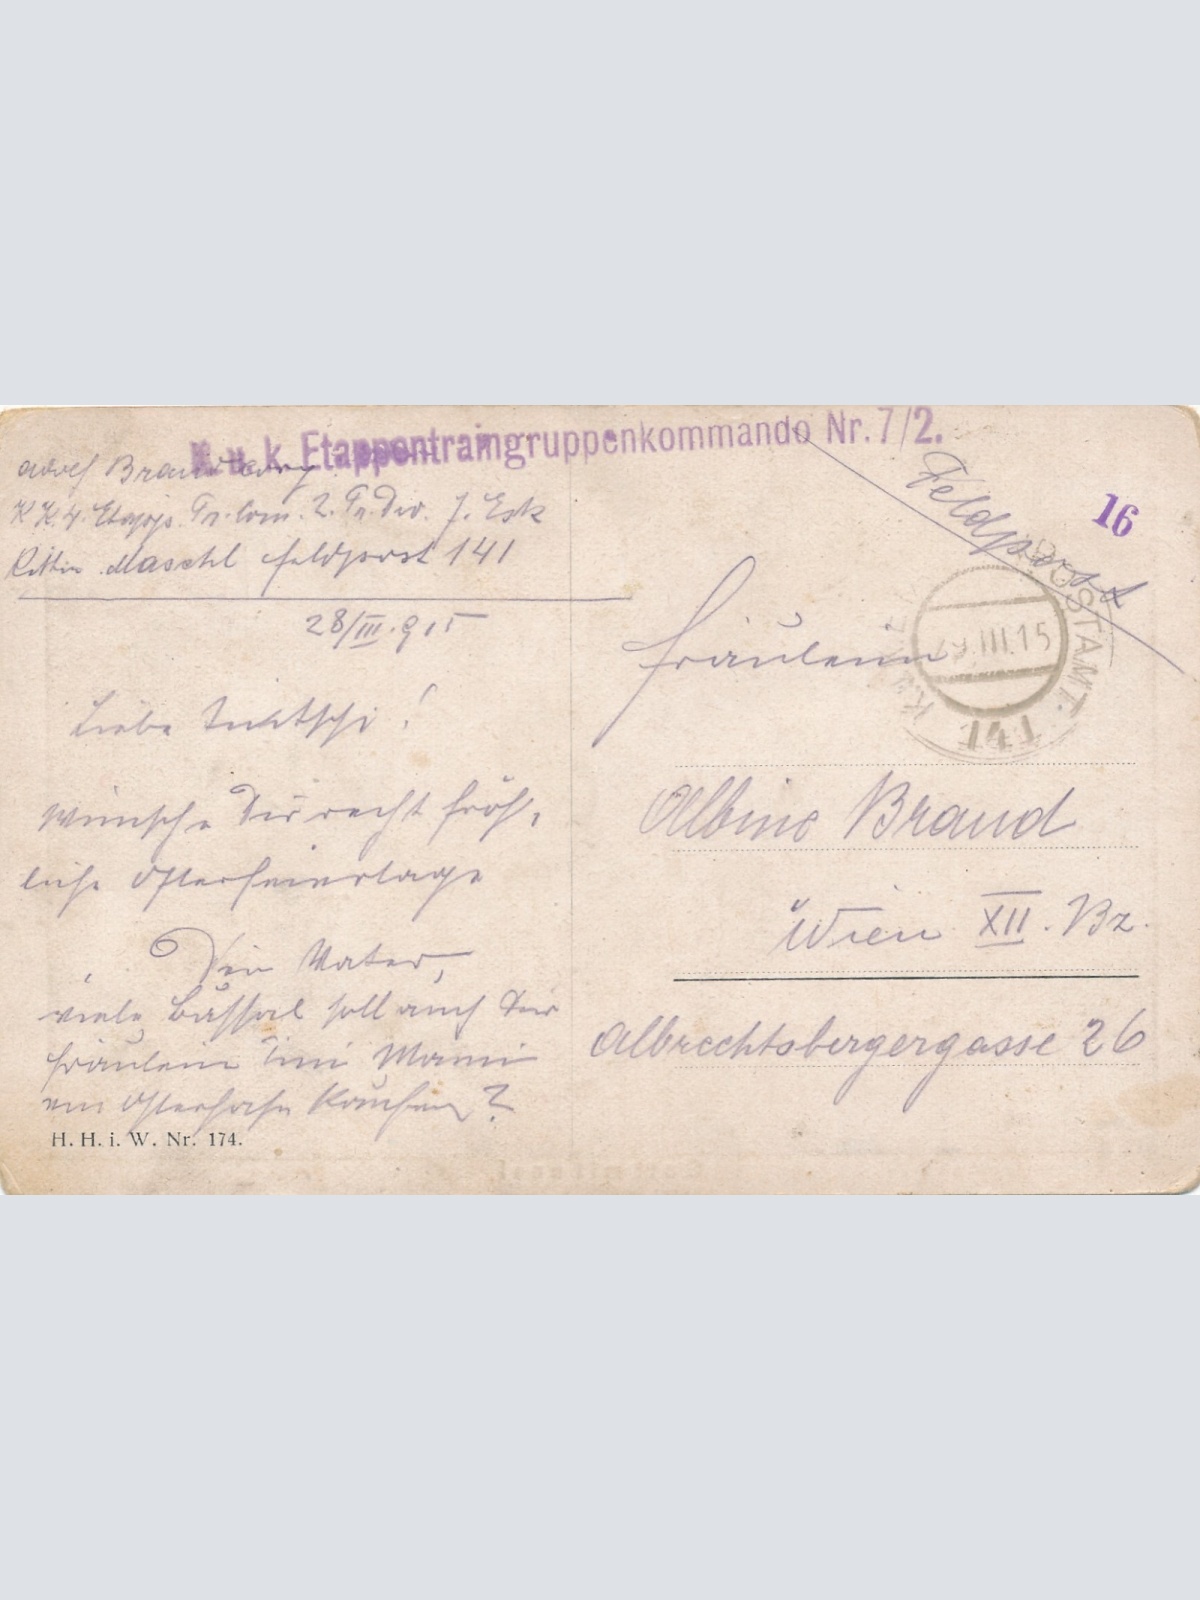 K. u. k. Etappentraingruppenkommando Nr. 7/2.
Adolf Brand
K K. 4. Etapps. Tr. Com. 2. Tr. Div. 7. Esk
Rittm. Maschl Feldpost 141
28/III. 915
Liebe !
Wünsche Dir recht fröh,
liche Osterfeiertage
Dein Vater,
viele Bussal soll auch Dir
Fräulein Tini Mami
ein Osterhase kaufen?
H. H. i. W. Nr. 174.
Feldpost
16
POSTAMT
29. III. 15
141
Fräulein
Albine Brand
Wien XII. Bz.
Albrechtsbergergasse 26